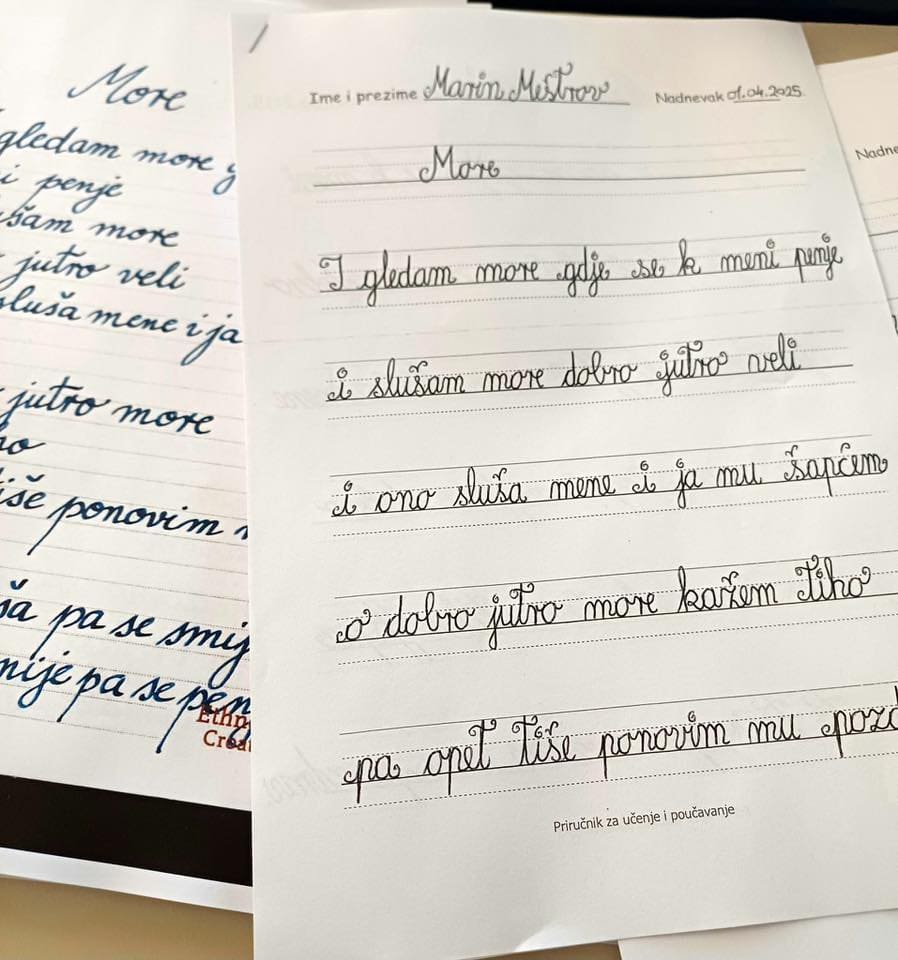 More
gledam more g
i penje
šam more
jutro veli
sluša mene i ja
jutro more
ho
iše ponovim
ša pa se smij
nije pa se penj
Ethn
Crea
Ime i prezime Marin Meštrov Nadnevak 01.04.2025.
More
I gledam more gdje se k meni penje
i slušam more dobro jutro veli
i ono sluša mene i ja mu šapćem
o dobro jutro more kažem tiho
pa opet tiše ponovim mu pozd
Priručnik za učenje i poučavanje
Nadne